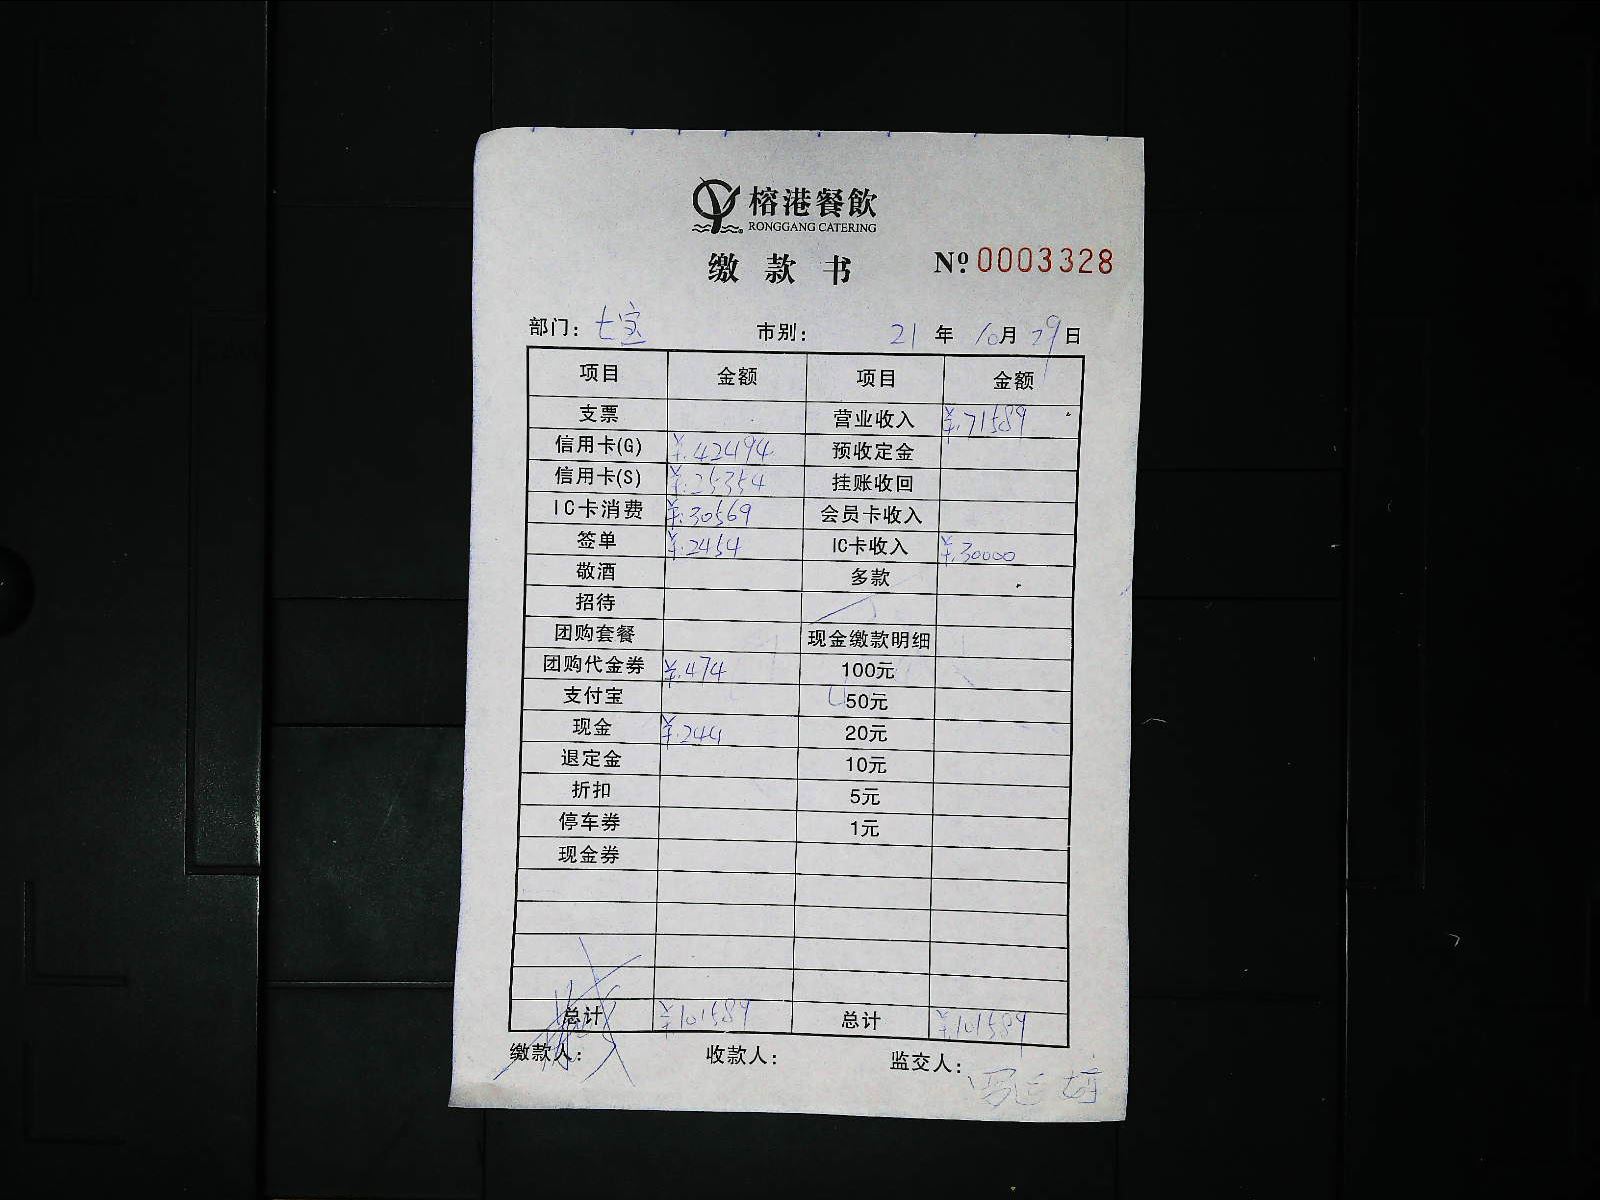 榕港餐飲
RONGGANG CATERING
缴款书 № 0003328
部门：七宝 市别： 21年10月29日
项目 金额 项目 金额
支票 营业收入 ¥.71589
信用卡(G) ¥.42494 预收定金
信用卡(S) ¥.25354 挂账收回
IC卡消费 ¥.30569 会员卡收入
签单 ¥.2454 IC卡收入 ¥.30000
敬酒 多款
招待
团购套餐 现金缴款明细
团购代金券 ¥.474 100元
支付宝 50元
现金 ¥.244 20元
退定金 10元
折扣 5元
停车券 1元
现金券
总计 ¥101589 总计 ¥101589
缴款人： 收款人： 监交人：